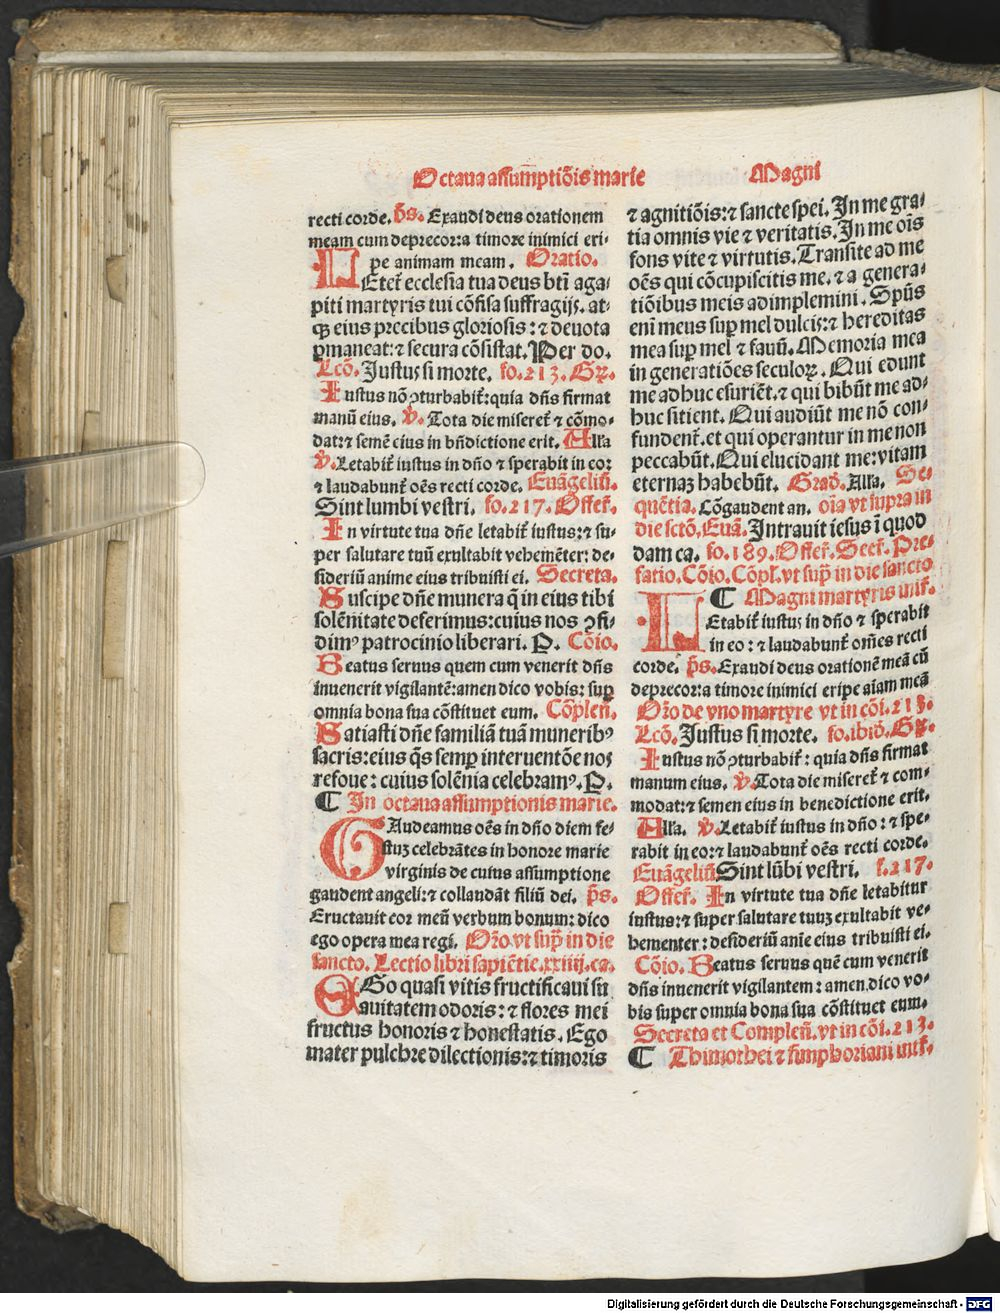 Octaua assumptiõis marie
Magni
recti corde. p̃s. Exaudi deus orationem
meam cum deprecor: a timore inimici eri⸗
pe animam meam. Oratio.
LEtet̃ ecclesia tua deus bt̃i aga⸗
piti martyris tui cõfisa suffragijs. at⸗
qꝫ eius precibus gloriosis: ⁊ deuota
ꝑmaneat: ⁊ secura cõsistat. Per do.
Lcõ. Justus si morte. fo. 213. Gꝝ.
Iustus nõ ꝯturbabit̃: quia dñs firmat
manũ eius. ꝟ. Tota die miseret̃ ⁊ cõmo⸗
dat: ⁊ semẽ eius in bñdictione erit. Alła
ꝟ. Letabit̃ iustus in dño ⁊ sperabit in eo:
⁊ laudabunt̃ oẽs recti corde. Euãgeliũ.
Sint lumbi vestri. fo. 217. Offer̃.
In virtute tua dñe letabit̃ iustus: ⁊ su⸗
per salutare tuũ exultabit vehemẽter: de⸗
sideriũ anime eius tribuisti ei. Secreta.
Suscipe dñe munera q̃ in eius tibi
solẽnitate deferimus: cuius nos ꝯfi⸗
dimꝰ patrocinio liberari. P. Cõio.
Beatus seruus quem cum venerit dñs
inuenerit vigilantẽ: amen dico vobis: suꝑ
omnia bona sua cõstituet eum. Cõpleñ.
Satiasti dñe familiã tuã muneribꝰ
sacris: eius q̃s semꝑ interuentõe nos
refoue: cuius solẽnia celebramꝰ. P.
¶ In octaua assumptionis marie.
GAudeamus oẽs in dño diem fe⸗
stuꝫ celebrãtes in honore marie
virginis de cuius assumptione
gaudent angeli: ⁊ collaudãt filiũ dei. p̃s.
Eructauit cor meũ verbum bonum: dico
ego opera mea regi. Oro vt sup̃ in die
sancto. Lectio libri sapiẽtie. xxiiij. ca.
EGo quasi vitis fructificaui su
auitatem odoris: ⁊ flores mei
fructus honoris ⁊ honestatis. Ego
mater pulchre dilectionis: ⁊ timoris
⁊ agnitiõis: ⁊ sancte spei. In me gra⸗
tia omnis vie ⁊ veritatis. In me oĩs
fons vite ⁊ virtutis. Transite ad me
oẽs qui cõcupiscitis me. ⁊ a genera⸗
tiõibus meis adimplemini. Spũs
eni meus suꝑ mel dulcis: ⁊ hereditas
mea suꝑ mel ⁊ fauũ. Memoria mea
in generatiões seculoꝝ. Qui edunt
me adhuc esuriẽt. ⁊ qui bibũt me ad⸗
huc sitient. Qui audiũt me nõ con⸗
fundent̃. et qui operantur in me non
peccabũt. Qui elucidant me: vitam
eternaꝫ habebũt. Grad̃. Alła. Se⸗
quẽtia. Cõgaudent an. oĩa vt supra in
die sctõ. Euã. Intrauit iesus ĩ quod
dam ca. fo. 189. Offer̃. Secr̃. Pre⸗
fatio. Cõio. Cõpł. vt sup̃ in die sancto
¶ Magni martyris intr̃.
LEtabit̃ iustus in dño ⁊ sperabit
in eo: ⁊ laudabunt̃ om̃es recti
corde. p̃s. Exaudi deus orationẽ meã cũ
deprecor: a timore inimici eripe aĩam meã
Oro de vno martyre vt in cõi. 213.
Lcõ. Justus si morte. fo. ibid̃. Gꝝ.
Iustus nõ ꝯturbabit̃: quia dñs firmat
manum eius. ꝟ. Tota die miseret̃ ⁊ com⸗
modat: ⁊ semen eius in benedictione erit.
Alła. ꝟ. Letabit̃ iustus in dño: ⁊ spe⸗
rabit in eo: ⁊ laudabunt̃ oẽs recti corde.
Euãgeliũ. Sint lũbi vestri. f. 217.
Offer̃. In virtute tua dñe letabitur
iustus: ⁊ super salutare tuuꝫ exultabit ve⸗
hementer: desideriũ anie eius tribuisti ei.
Cõio. Beatus seruus quẽ cum venerit
dñs inuenerit vigilantem: amen dico vo⸗
bis super omnia bona sua cõstituet eum.
Secreta et Compleñ. vt in cõi. 213.
¶ Thimothei ⁊ simphoriani intr̃.
Digitalisierung gefördert durch die Deutsche Forschungsgemeinschaft - DFG